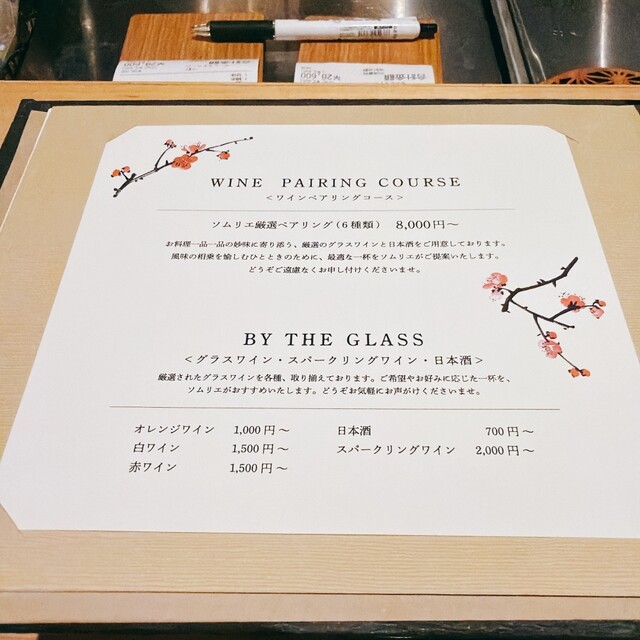 WINE PAIRING COURSE
<ワインペアリングコース>
ソムリエ厳選ペアリング(6種類) 8,000円~
お料理一品一品の妙味に寄り添う、厳選のグラスワインと日本酒をご用意しております。
風味の相乗を愉しむひとときのために、最適な一杯をソムリエがご提案いたします。
どうぞご遠慮なくお申し付けくださいませ。
BY THE GLASS
<グラスワイン・スパークリングワイン・日本酒>
厳選されたグラスワインを各種、取り揃えております。ご希望やお好みに応じた一杯を、
ソムリエがおすすめいたします。どうぞお気軽にお声がけくださいませ。
オレンジワイン 1,000円~ 日本酒 700円~
白ワイン 1,500円~ スパークリングワイン 2,000円~
赤ワイン 1,500円~